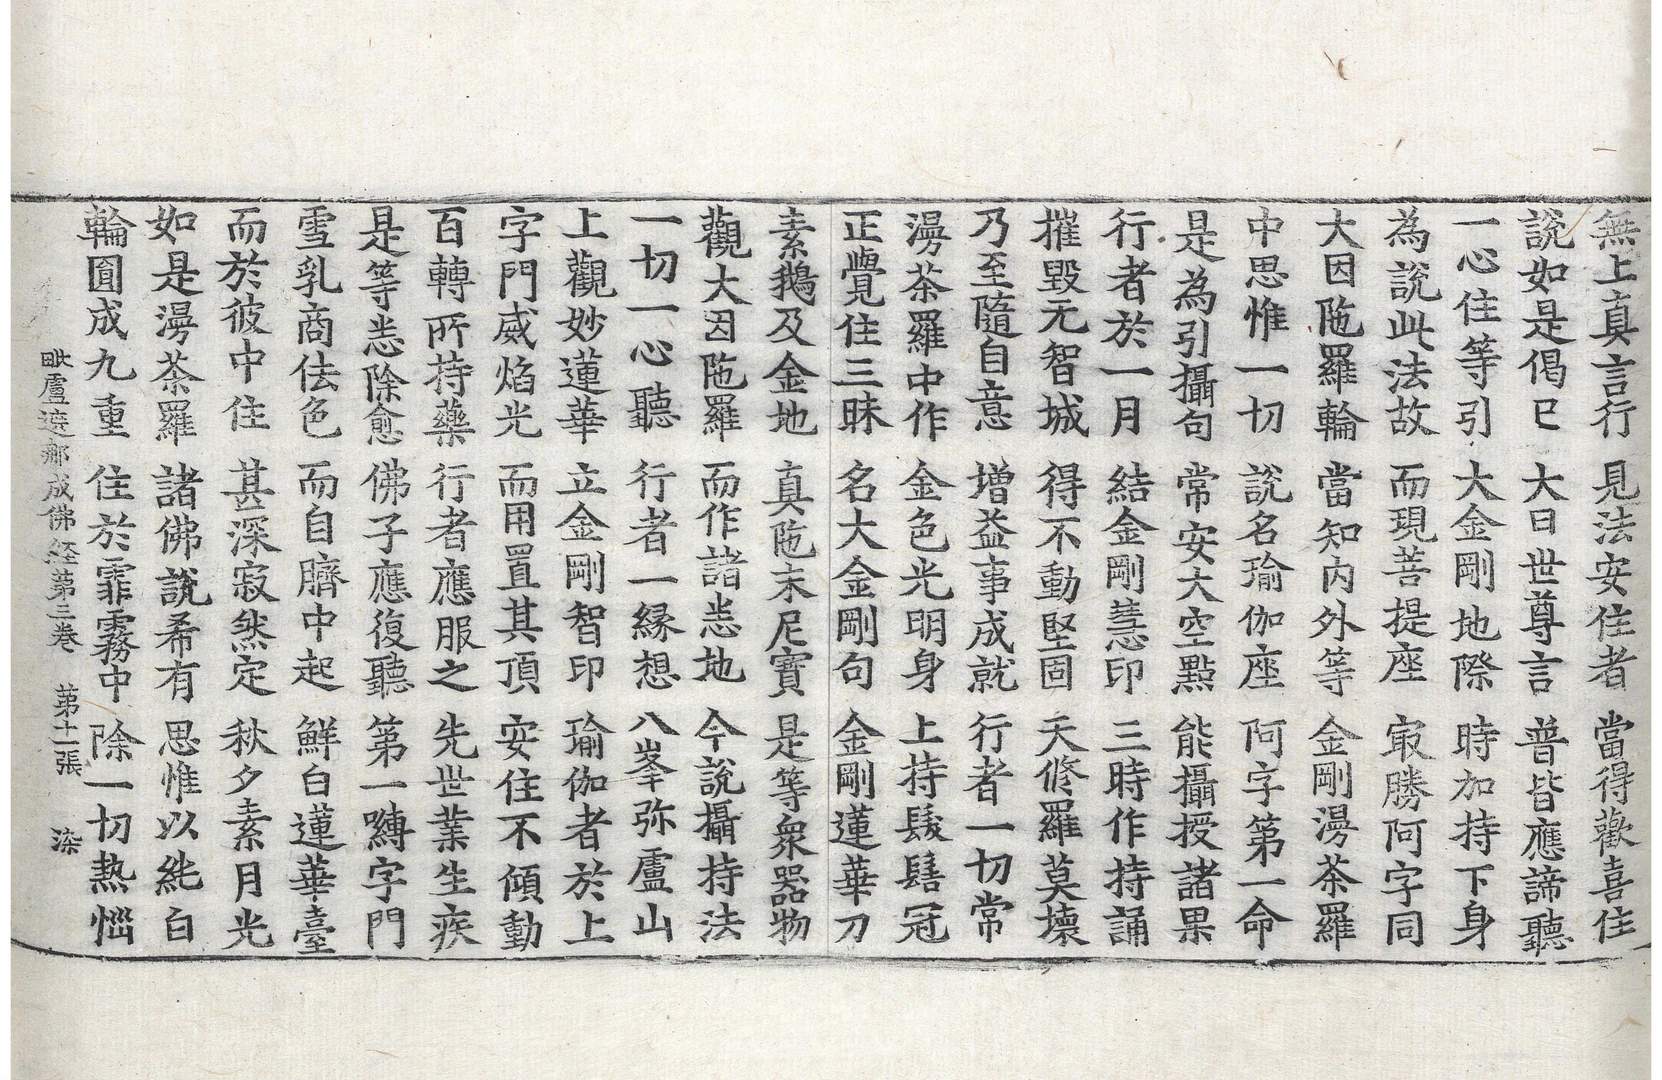 無上真言行　見法安住者　當得歡喜住
說如是偈已　大日世尊言　普皆應諦聽
一心住等引　大金剛地際　時加持下身
為說此法故　而現菩提座　㝡勝阿字同
大因陁羅輪　當知內外等　金剛漫茶羅
中思惟一切　說名瑜伽座　阿字第一命
是為引攝句　常安大空點　能攝授諸果
行者於一月　結金剛慧印　三時作持誦
摧毀无智城　得不動堅固　天脩羅莫壞
乃至隨自意　增益事成就　行者一切常
漫茶羅中作　金色光明身　上持髮髻冠
正覺住三昧　名大金剛句　金剛蓮華刀
素鵝及金地　真陁末尼寶　是等衆器物
觀大因陁羅　而作諸悉地　今說攝持法
一切一心聽　行者一緣想　八峯弥盧山
上觀妙蓮華　立金剛智印　瑜伽者於上
字門威焰光　而用置其頂　安住不傾動
百轉所持藥　行者應服之　先世業生疾
是等悉除愈　佛子應復聽　第一嚩字門
雪乳商佉色　而自臍中起　鮮白蓮華臺
而於彼中住　甚深寂然定　秋夕素月光
如是漫茶羅　諸佛說希有　思惟以純白
輪圓成九重　住於霏霧中　除一切熱惱
毗盧遮那成佛經第三卷　第十一張　染